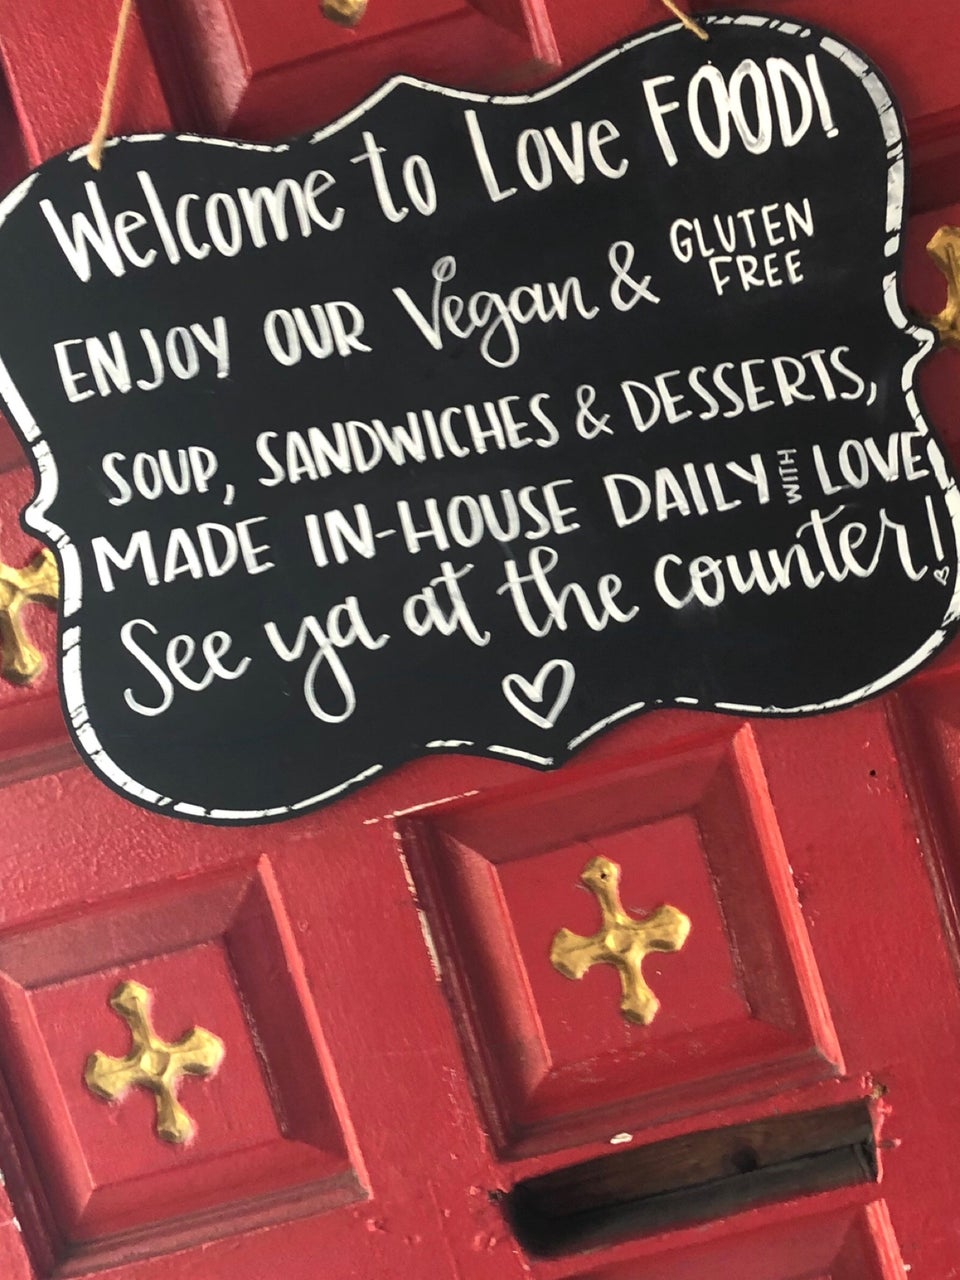 Welcome to Love FOOD!
ENJOY OUR Vegan & GLUTEN FREE
SOUP, SANDWICHES & DESSERTS,
MADE IN-HOUSE DAILY WITH LOVE
See ya at the counter!